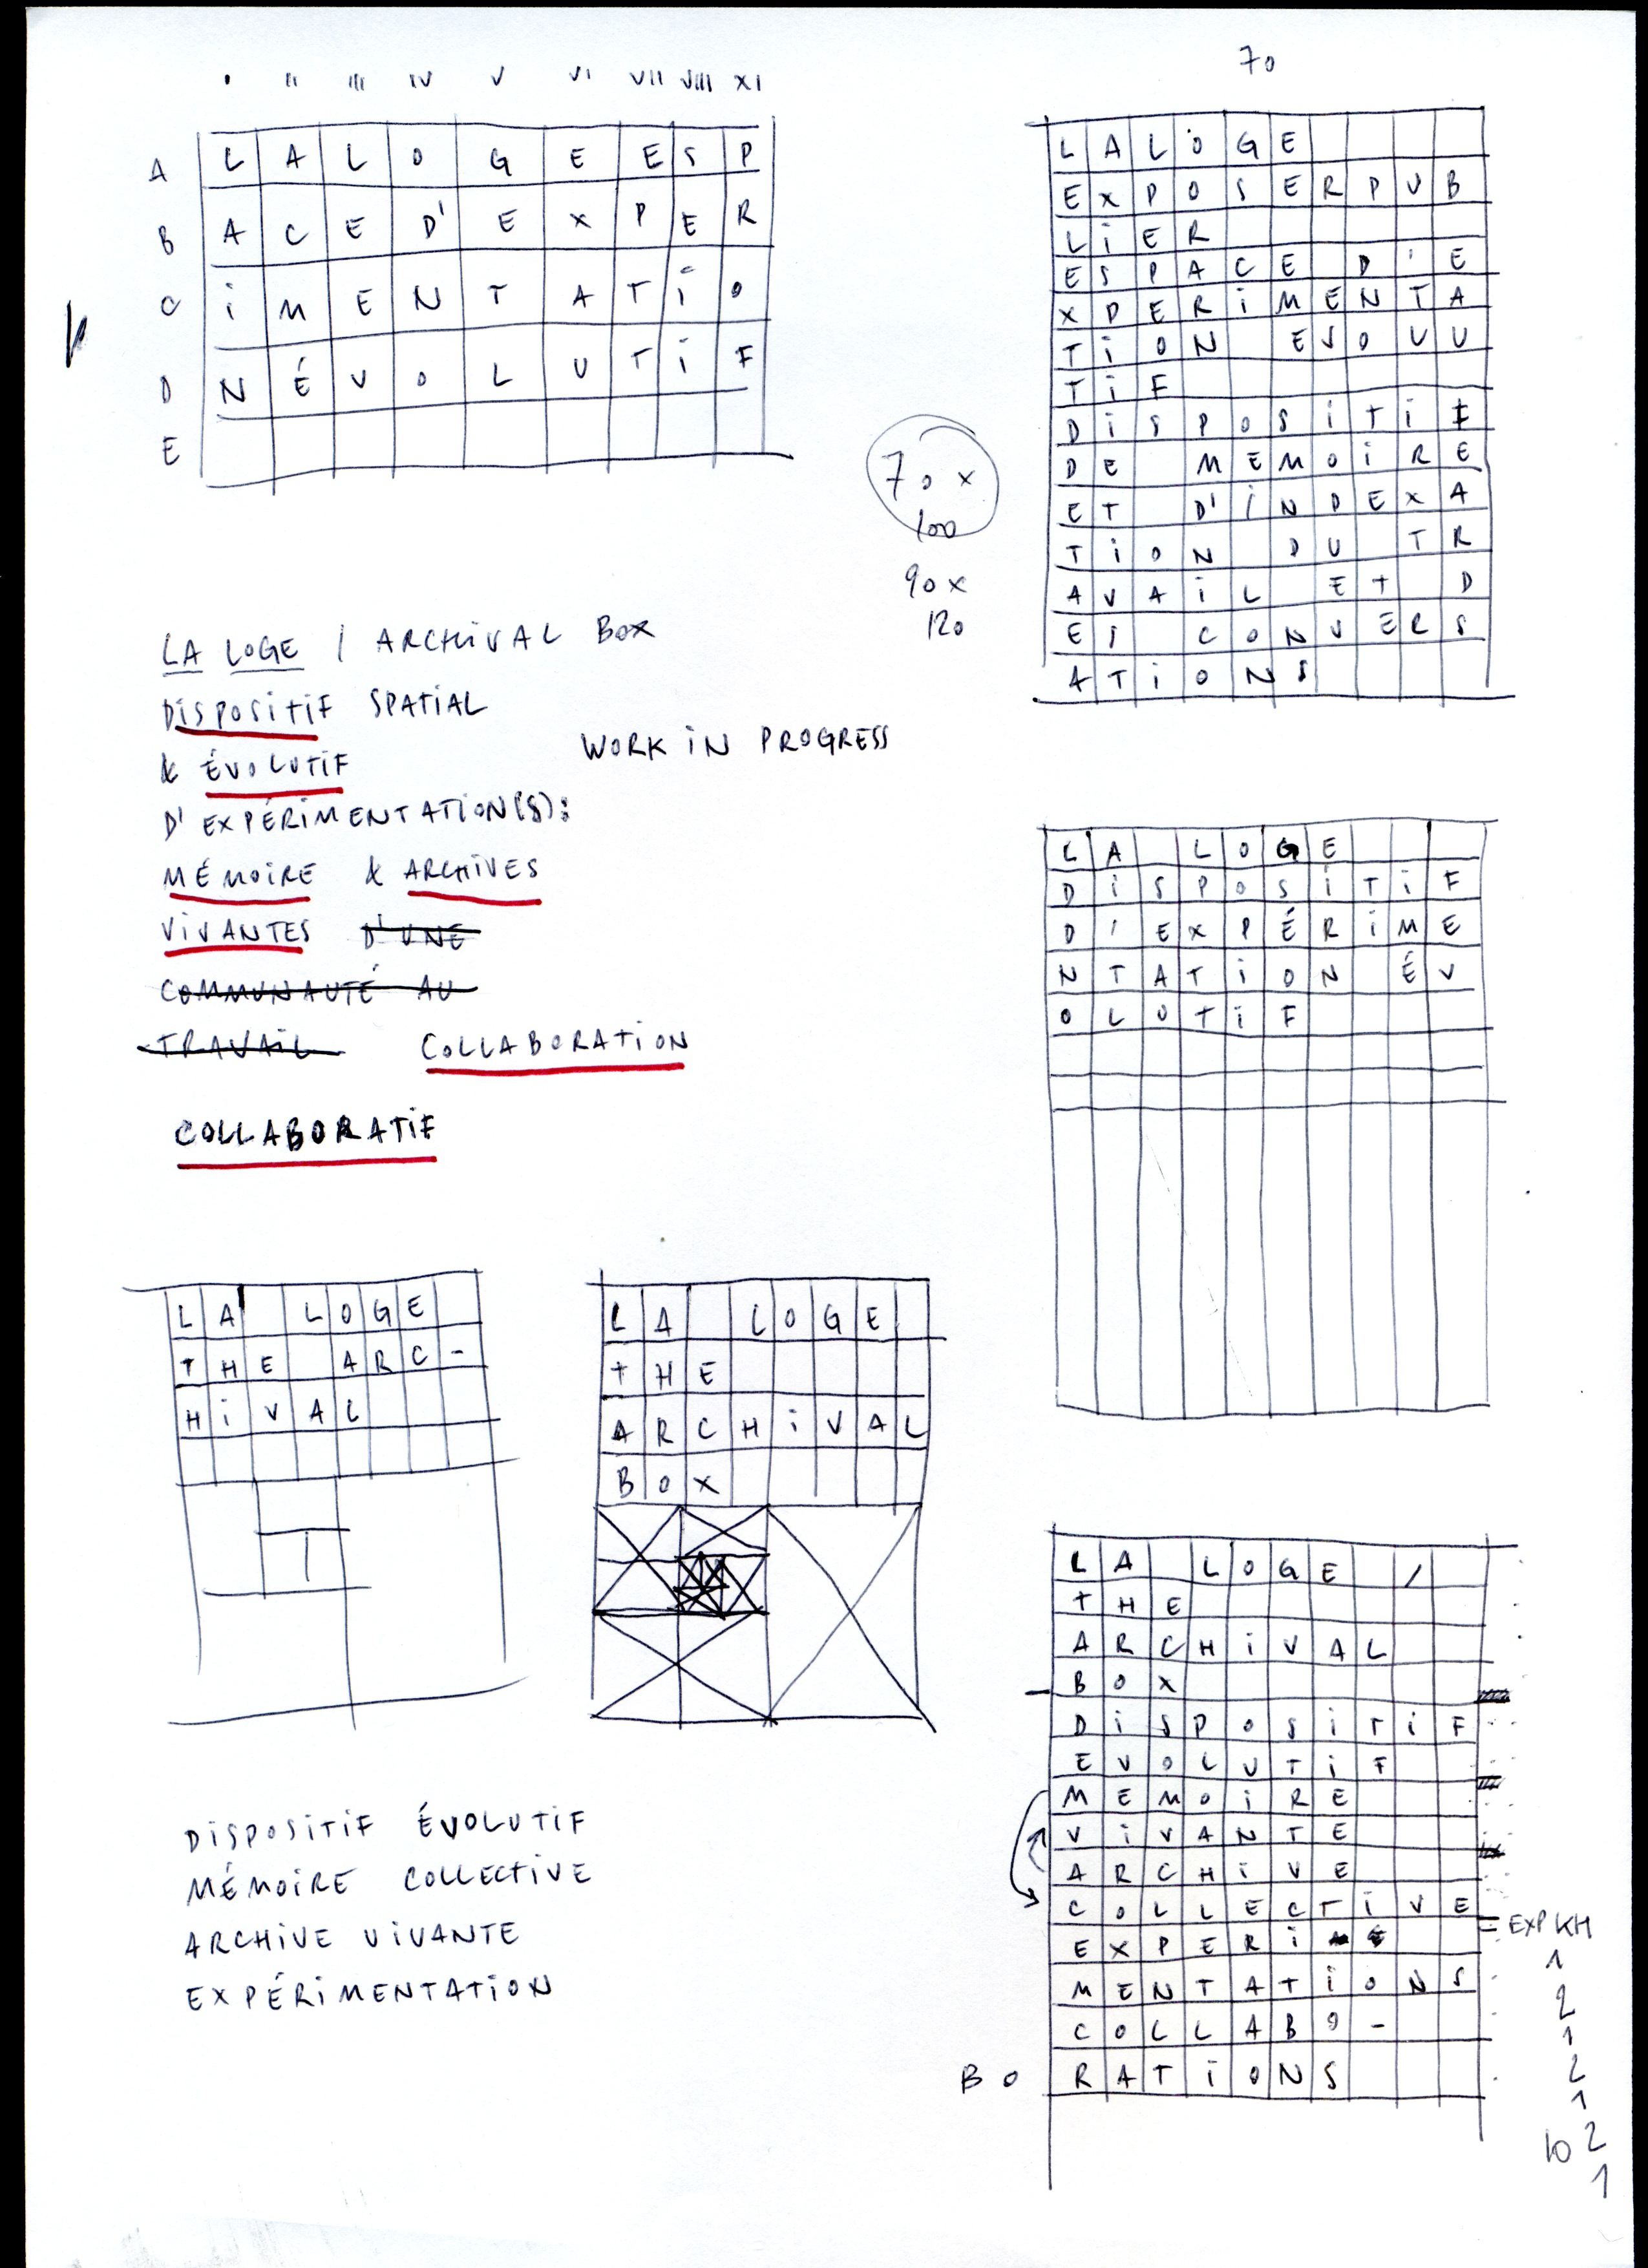 • II III IV V VI VII VIII XI
A L A L O G E E S P
B A C E D' E X P E R
C i M E N T A T i O
D N É V O L U T i F
E
70
L A L O G E
E X P O S E R P U B
L i E R
E S P A C E D ' E
X P E R i M E N T A
T i O N E V O L U
T i F
D i S P O S i T i F
D E M E M O i R E
E T D' i N D E X A
T i O N D U T R
A V A i L E T D
E S C O N V E R S
A T i O N S
70 x
100
90 x
120
LA LOGE / ARCHIVAL BOX
DiSPOSiTiF SPATiAL
& ÉVOLUTiF
WORK iN PROGRESS
D'EXPÉRIMENTATiON(S):
MÉMOiRE & ARCHiVES
ViVANTES D'UNE
COMMUNAUTÉ AU
TRAVAiL COLLABORATiON
COLLABORATiF
L A L O G E
D i S P O S i T i F
D ' E X P É R i M E
N T A T i O N É V
O L U T i F
L A L O G E
T H E A R C -
H i V A L
L A L O G E
T H E
A R C H i V A L
B O X
L A L O G E /
T H E
A R C H i V A L
B O X
D i S P O S i T i F
E V O L U T i F
M E M O i R E
V i V A N T E
A R C H i V E
C O L L E C T i V E
E X P E R i
M E N T A T i O N S
C O L L A B O -
B O R A T i O N S
EXP KH
1
2
1
2
1
10 2
1
DiSPOSiTiF ÉVOLUTiF
MÉMOiRE COLLECTiVE
ARCHiVE ViVANTE
EXPÉRiMENTATiON